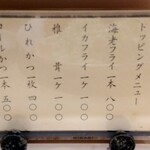 トッピングメニュー
海老フライ一本 八〇〇
イカフライ一ケ 一〇〇
椎茸一ケ 一〇〇
ひれかつ一枚 四〇〇
かつ一本 五〇〇